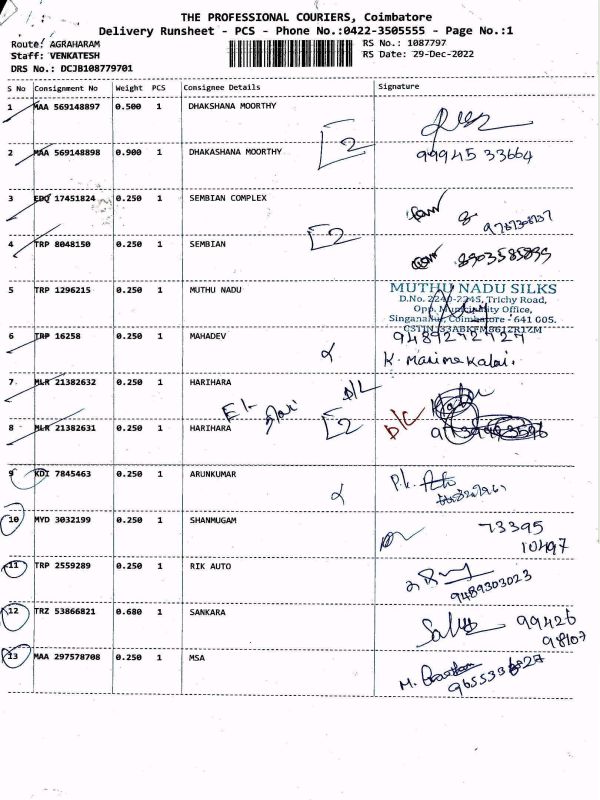 THE PROFESSIONAL COURIERS, Coimbatore
Delivery Runsheet - PCS - Phone No.:0422-3505555 - Page No.:1
Route: AGRAHARAM
RS No.: 1087797
Staff: VENKATESH
RS Date: 29-Dec-2022
DRS No.: DCJB108779701
S No Consignment No Weight PCS Consignee Details Signature
1 MAA 569148897 0.500 1 DHAKSHANA MOORTHY
2 MAA 569148898 0.900 1 DHAKASHANA MOORTHY 2 99945 33664
3 EDQ 17451824 0.250 1 SEMBIAN COMPLEX
4 TRP 8048150 0.250 1 SEMBIAN 2 8903585899
5 TRP 1296215 0.250 1 MUTHU NADU
MUTHU NADU SILKS
D.No. 2240-2245, Trichy Road,
Opp. Municipality Office,
Singanallur, Coimbatore - 641 005.
GSTIN :33ABKFM8612R1ZM
6 TRP 16258 0.250 1 MAHADEV 9489272727
K. Marimekalai.
7 MLR 21382632 0.250 1 HARIHARA D/L
8 MLR 21382631 0.250 1 HARIHARA 2 D/C
9 KDI 7845463 0.250 1 ARUNKUMAR
10 MYD 3032199 0.250 1 SHANMUGAM 73395
10497
11 TRP 2559289 0.250 1 RIK AUTO 9489303023
12 TRZ 53866821 0.680 1 SANKARA 99426
98107
13 MAA 297578708 0.250 1 MSA